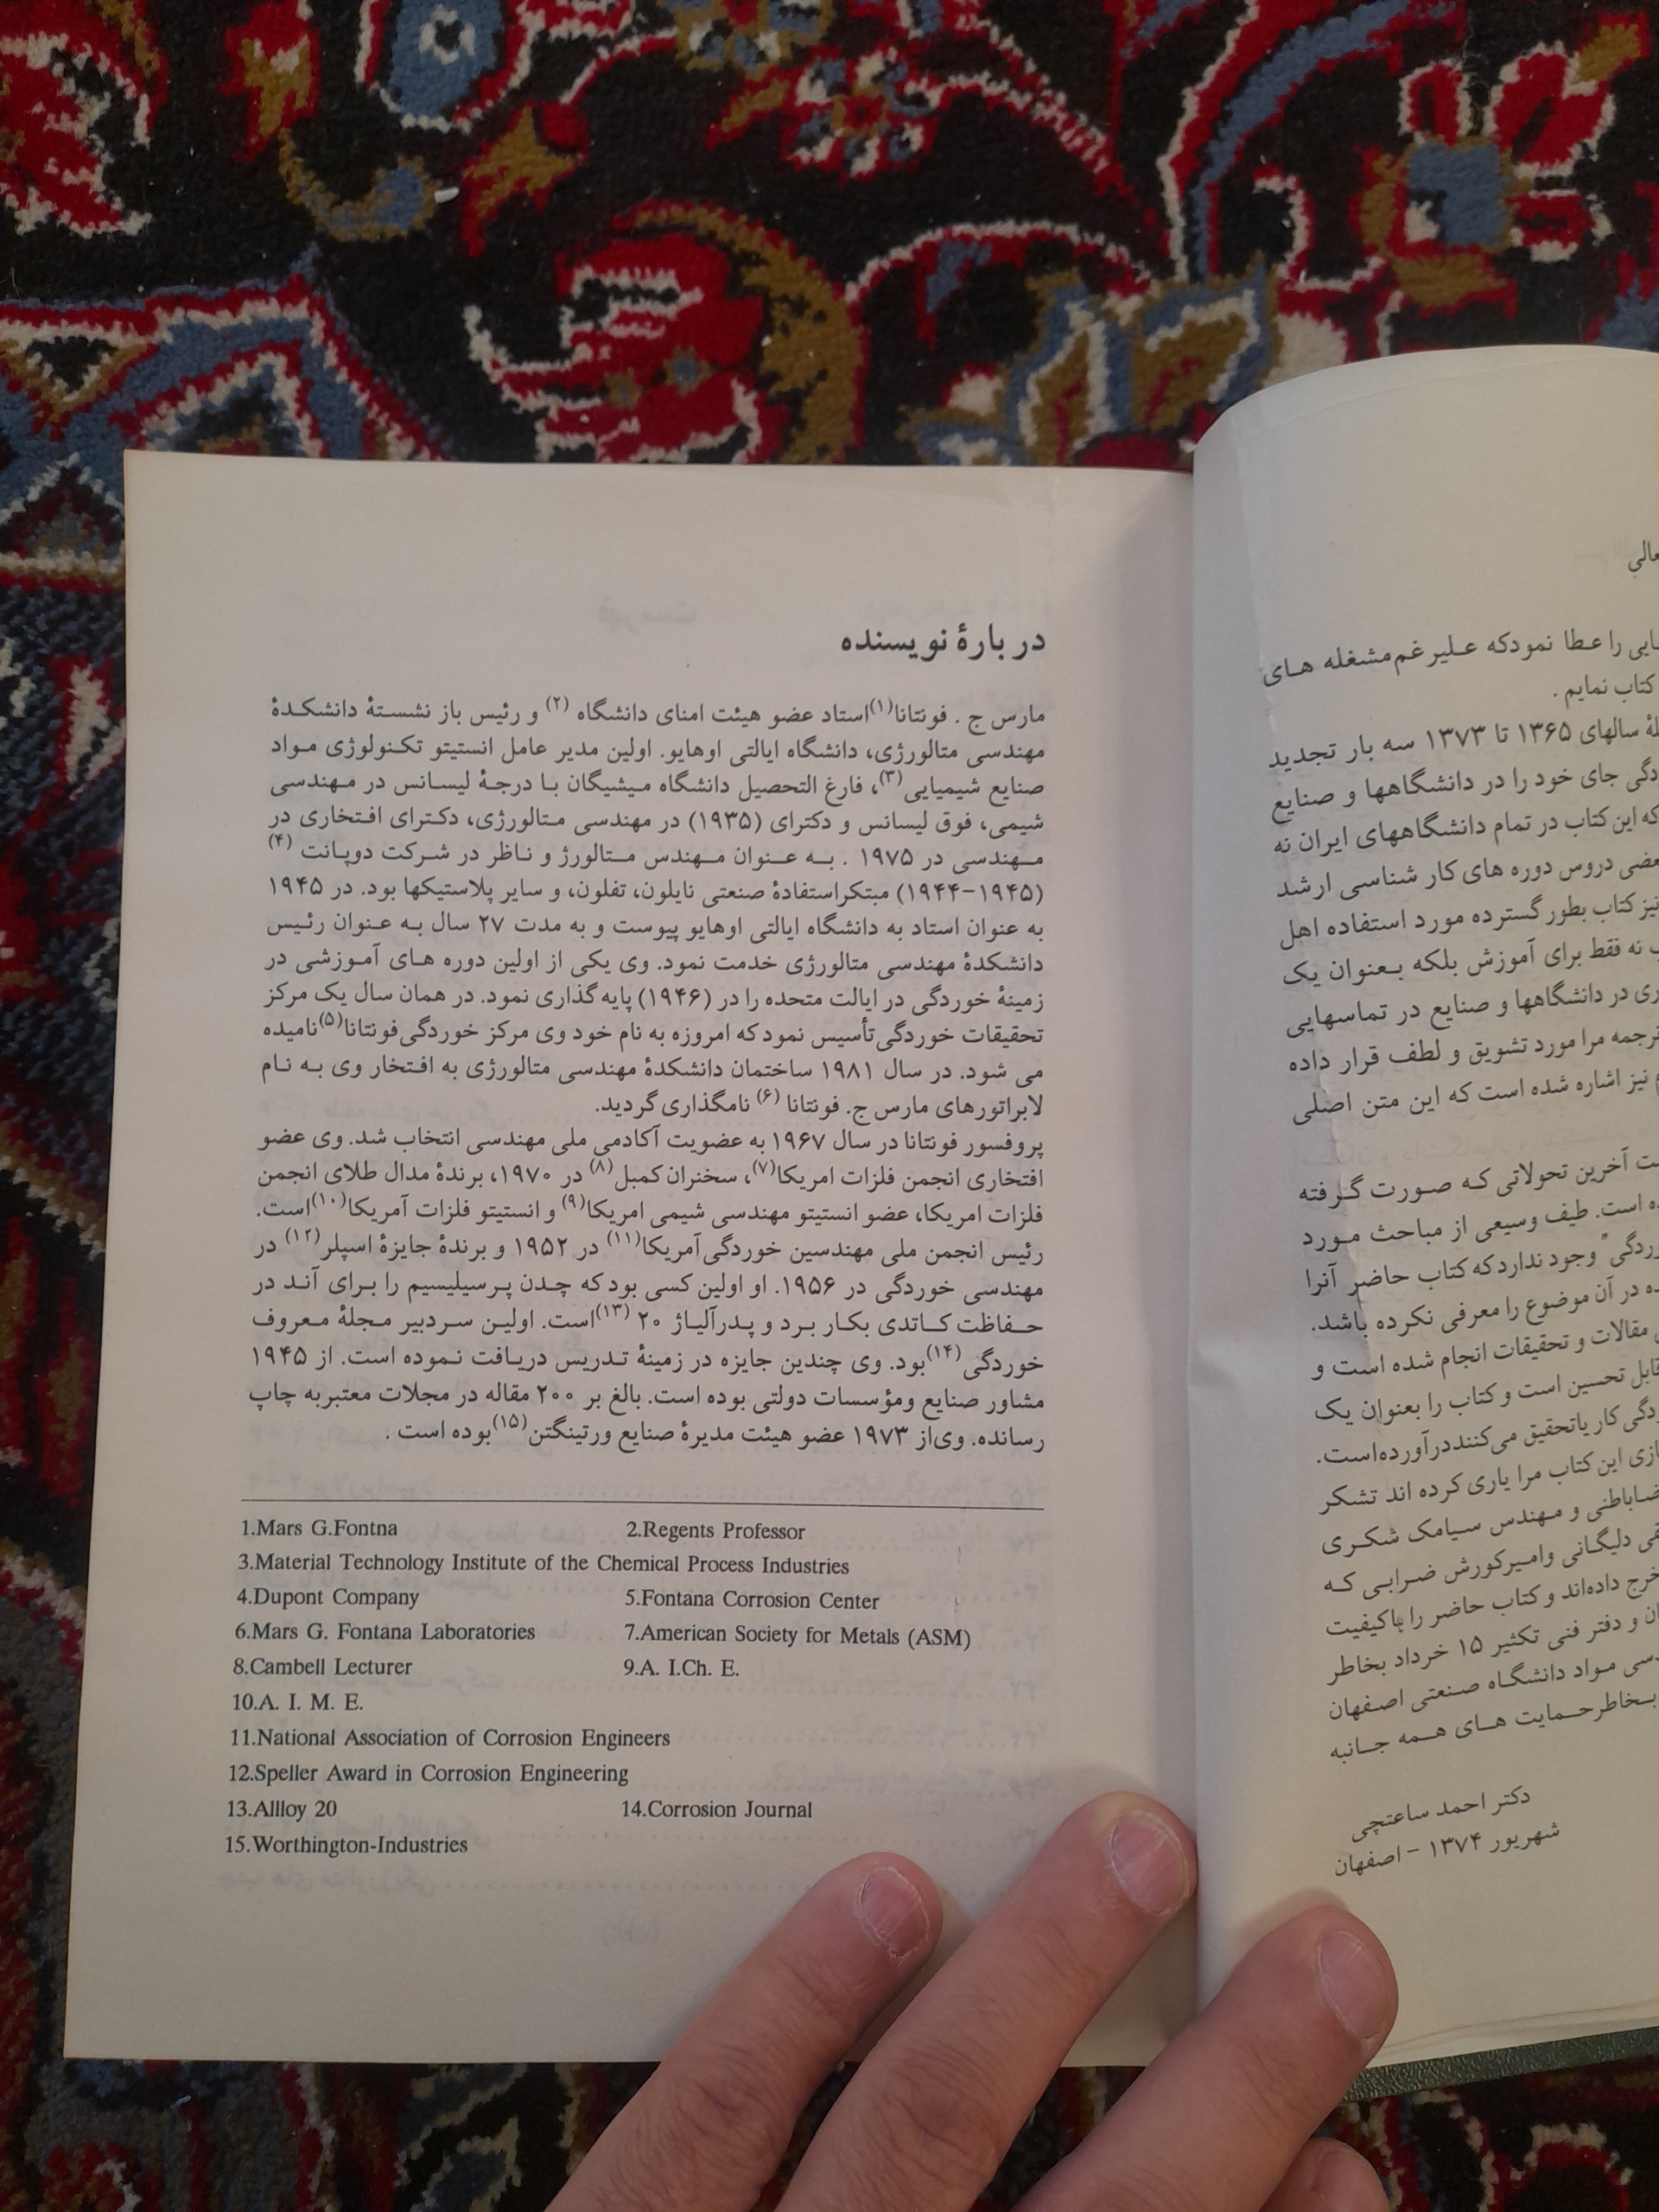 دربارهٔ نویسنده
مارس ج . فونتانا(۱)استاد عضو هیئت امنای دانشگاه (۲) و رئیس باز نشستهٔ دانشکدهٔ
مهندسی متالورژی، دانشگاه ایالتی اوهایو. اولین مدیر عامل انستیتو تکنولوژی مواد
صنایع شیمیایی(۳)، فارغ التحصیل دانشگاه میشیگان با درجهٔ لیسانس در مهندسی
شیمی، فوق لیسانس و دکترای (۱۹۳۵) در مهندسی متالورژی، دکترای افتخاری در
مهندسی در ۱۹۷۵ . به عنوان مهندس متالورژ و ناظر در شرکت دوپانت (۴)
(۱۹۴۵-۱۹۴۴) مبتکراستفادهٔ صنعتی نایلون، تفلون، و سایر پلاستیکها بود. در ۱۹۴۵
به عنوان استاد به دانشگاه ایالتی اوهایو پیوست و به مدت ۲۷ سال به عنوان رئیس
دانشکدهٔ مهندسی متالورژی خدمت نمود. وی یکی از اولین دوره های آموزشی در
زمینهٔ خوردگی در ایالت متحده را در (۱۹۴۶) پایه گذاری نمود. در همان سال یک مرکز
تحقیقات خوردگی تأسیس نمود که امروزه به نام خود وی مرکز خوردگی فونتانا(۵)نامیده
می شود. در سال ۱۹۸۱ ساختمان دانشکدهٔ مهندسی متالورژی به افتخار وی به نام
لابراتورهای مارس ج. فونتانا (۶) نامگذاری گردید.
پروفسور فونتانا در سال ۱۹۶۷ به عضویت آکادمی ملی مهندسی انتخاب شد. وی عضو
افتخاری انجمن فلزات امریکا(۷)، سخنران کمبل(۸) در ۱۹۷۰، برندهٔ مدال طلای انجمن
فلزات امریکا، عضو انستیتو مهندسی شیمی امریکا(۹) و انستیتو فلزات آمریکا(۱۰)است.
رئیس انجمن ملی مهندسین خوردگی آمریکا(۱۱) در ۱۹۵۲ و برندهٔ جایزهٔ اسپلر(۱۲) در
مهندسی خوردگی در ۱۹۵۶. او اولین کسی بود که چدن پرسیلیسیم را برای آند در
حفاظت کاتدی بکار برد و پدرآلیاژ ۲۰ (۱۳)است. اولین سردبیر مجلهٔ معروف
خوردگی(۱۴)بود. وی چندین جایزه در زمینهٔ تدریس دریافت نموده است. از ۱۹۴۵
مشاور صنایع ومؤسسات دولتی بوده است. بالغ بر ۲۰۰ مقاله در مجلات معتبربه چاپ
رسانده. وی‌از ۱۹۷۳ عضو هیئت مدیرهٔ صنایع ورتینگتن(۱۵)بوده است .
1.Mars G.Fontna 2.Regents Professor
3.Material Technology Institute of the Chemical Process Industries
4.Dupont Company 5.Fontana Corrosion Center
6.Mars G. Fontana Laboratories 7.American Society for Metals (ASM)
8.Cambell Lecturer 9.A. I.Ch. E.
10.A. I. M. E.
11.National Association of Corrosion Engineers
12.Speller Award in Corrosion Engineering
13.Allloy 20 14.Corrosion Journal
15.Worthington-Industries
را عطا نمودکه علیرغم مشغله های
کتاب نمایم .
سالهای ۱۳۶۵ تا ۱۳۷۳ سه بار تجدید
جای خود را در دانشگاهها و صنایع
که این کتاب در تمام دانشگاههای ایران نه
دروس دوره های کار شناسی ارشد
نیز کتاب بطور گسترده مورد استفاده اهل
نه فقط برای آموزش بلکه بعنوان یک
در دانشگاهها و صنایع در تماسهایی
مرا مورد تشویق و لطف قرار داده
نیز اشاره شده است که این متن اصلی
آخرین تحولاتی که صورت گرفته
است. طیف وسیعی از مباحث مورد
وجود ندارد که کتاب حاضر آنرا
در آن موضوع را معرفی نکرده باشد.
مقالات و تحقیقات انجام شده است و
تحسین است و کتاب را بعنوان یک
کار یاتحقیق می‌کننددرآورده‌است.
این کتاب مرا یاری کرده اند تشکر
و مهندس سیامک شکری
دلیگانی وامیرکورش ضرابی که
خرج داده‌اند و کتاب حاضر را باکیفیت
و دفتر فنی تکثیر ۱۵ خرداد بخاطر
مواد دانشگاه صنعتی اصفهان
بخاطرحمایت های همه جانبه
دکتر احمد ساعتچی
شهریور ۱۳۷۴ - اصفهان